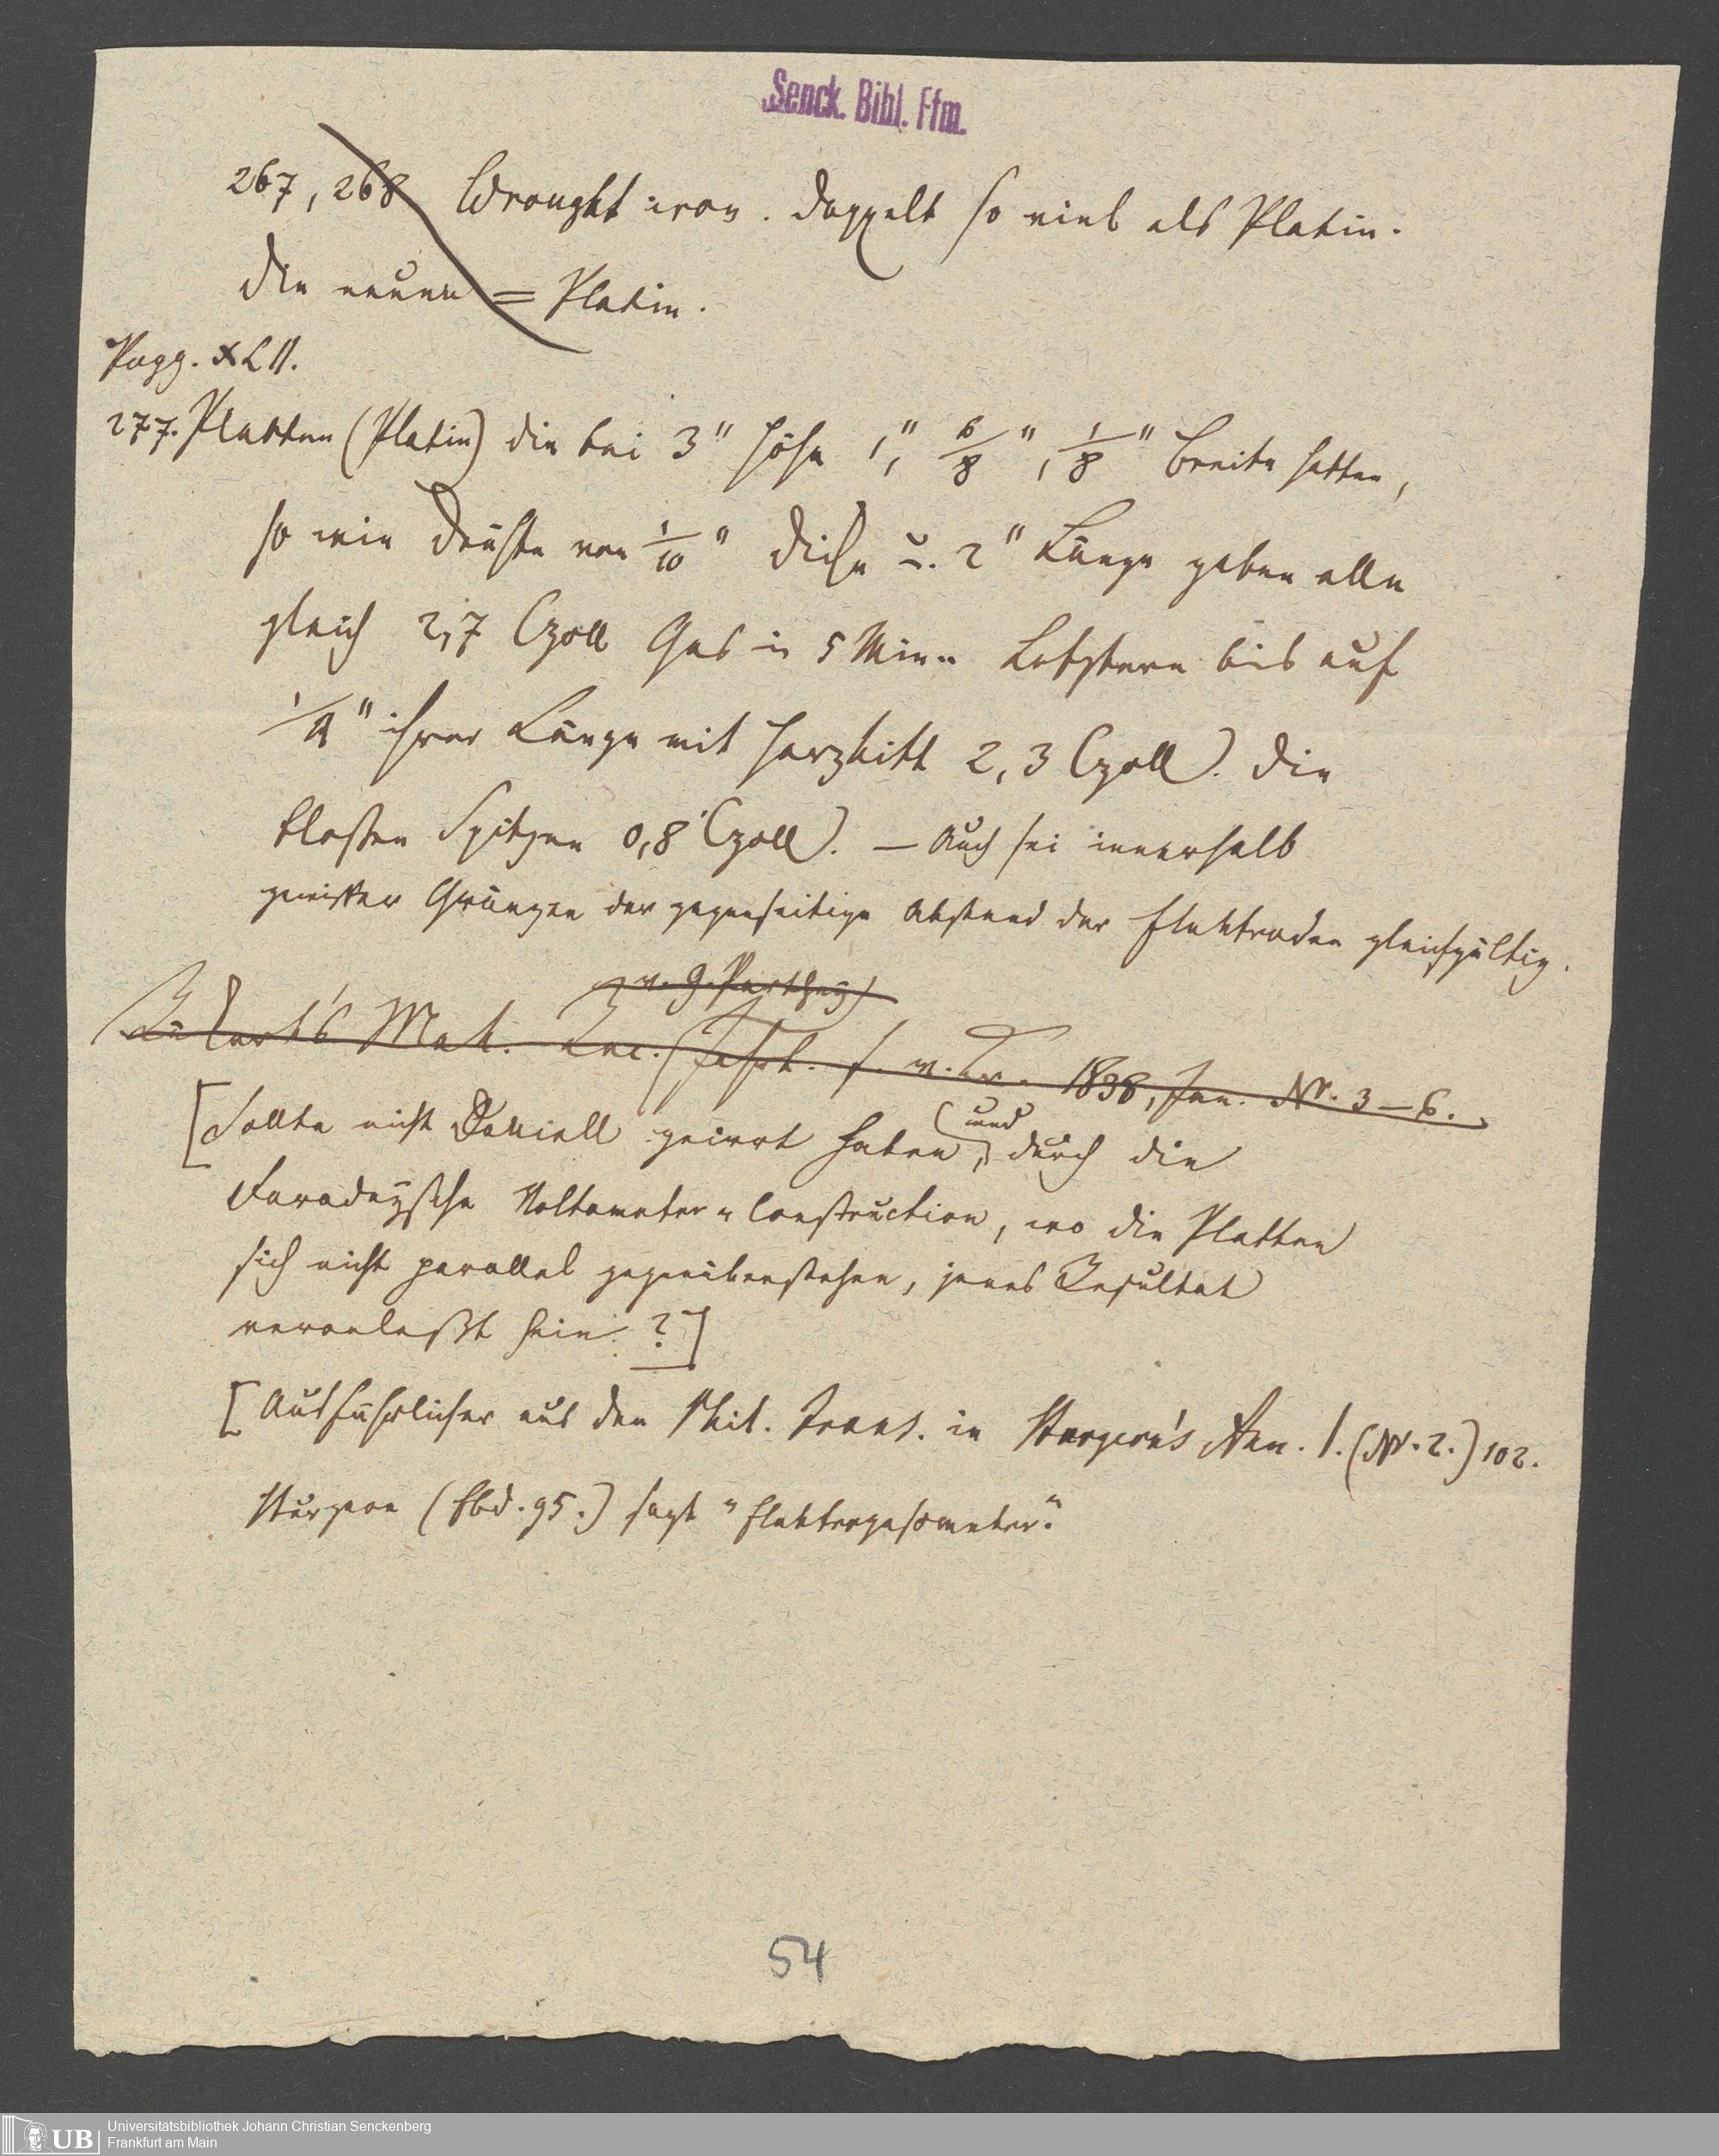 Senck. Bibl. Ffm.
267, 268 Wrought iron. doppelt so viel als Platin.
die neuen = Platin.
Pogg. XLII.
277. Platten (Platin) die bei 3" Höhe 1", 6/8", 1/8" Breite hatten,
so wie Drähte von 1/10" Dicke u. 2" Länge geben alle
gleich 2,7 Czoll Gas in 5 Min. Letztere bis auf
1/4" ihrer Länge mit Harzkitt 2,3 Czoll). Die
bloßen Spitzen 0,8 Czoll). — Auch sei innerhalb
gewisser Gränzen der gegenseitige Abstand der Elektroden gleichgültig.
v. G. Parthey)
Mak. 1838, Jan. Nr. 3—6.
[Sollte nicht Daniell geirrt haben, und durch die
Faradaysche Voltameter-Construction, wo die Platten
sich nicht parallel gegenüberstehen, jenes Resultat
veranlaßt sein?]
[Ausführlicher aus den Phil. Trans. in Sturgeon's Ann. I. (Nr. 2.) 102.
Sturgeon (Ebd. 95.) sagt "Elektrogasometer."
54
UB
Universitätsbibliothek Johann Christian Senckenberg
Frankfurt am Main